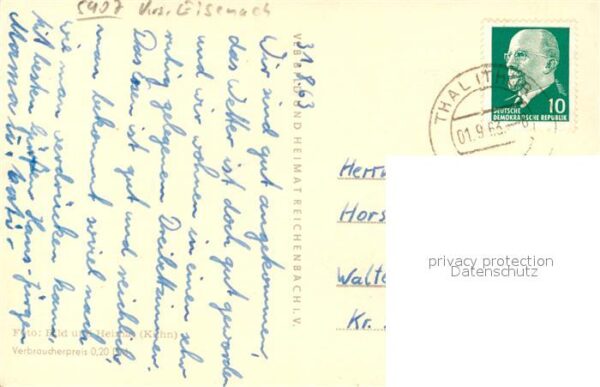 5907 Krs. Eisenach
31.8.63
Wir sind gut angekommen,
das Wetter ist doch gut geworden
und wir wohnen in einem sehr
ruhig gelegenen Dreibettzimmer.
Das Essen ist gut und reichlich,
man bekommt soviel nach
wie man verdrücken kann.
Mit besten Grüßen Hans-Jürgen
Mama u. Vati.-
Foto: Bild und Heimat (Kühn)
Verbraucherpreis 0,20 DM
VEB BILD UND HEIMAT REICHENBACH I. V.
THAL (THÜR
01.9.63
10
DEUTSCHE
DEMOKRATISCHE REPUBLIK
Herrn
Hors
Walte
Kr.
privacy protection
Datenschutz